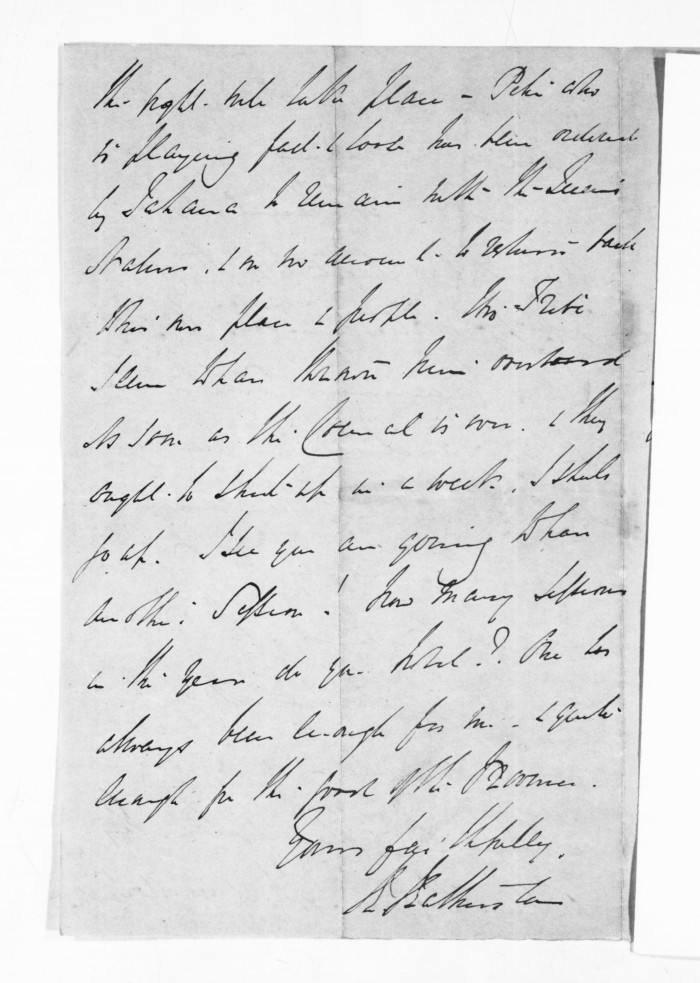 the fight will take place - Pehi who
is playing fast & loose has been ordered
by Tahana to remain with the Queen's
Natives, & on no account to return back
this own place & people. His Tribe
seem to have thrown him overboard
As soon as the Council is over, & they
ought to shut up in a week, I shall
go up. I see you are going to have
another Session! How many Sessions
in the year do you hold? One has
always been enough for me - & quite
enough for the good of the Province.
Yours faithfully,
I E Featherston